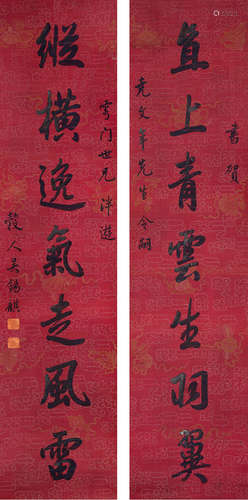 書賀
直上青雲生羽翼
堯文年先生令嗣
雪门世兄泮遊
縱橫逸氣走風雷
穀人吴錫麒